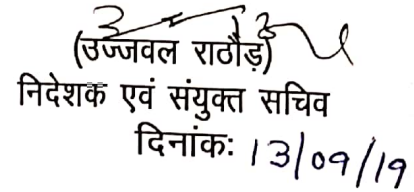 (उज्जवल राठौड़)
निदेशक एवं संयुक्त सचिव
दिनांक: 13/09/19